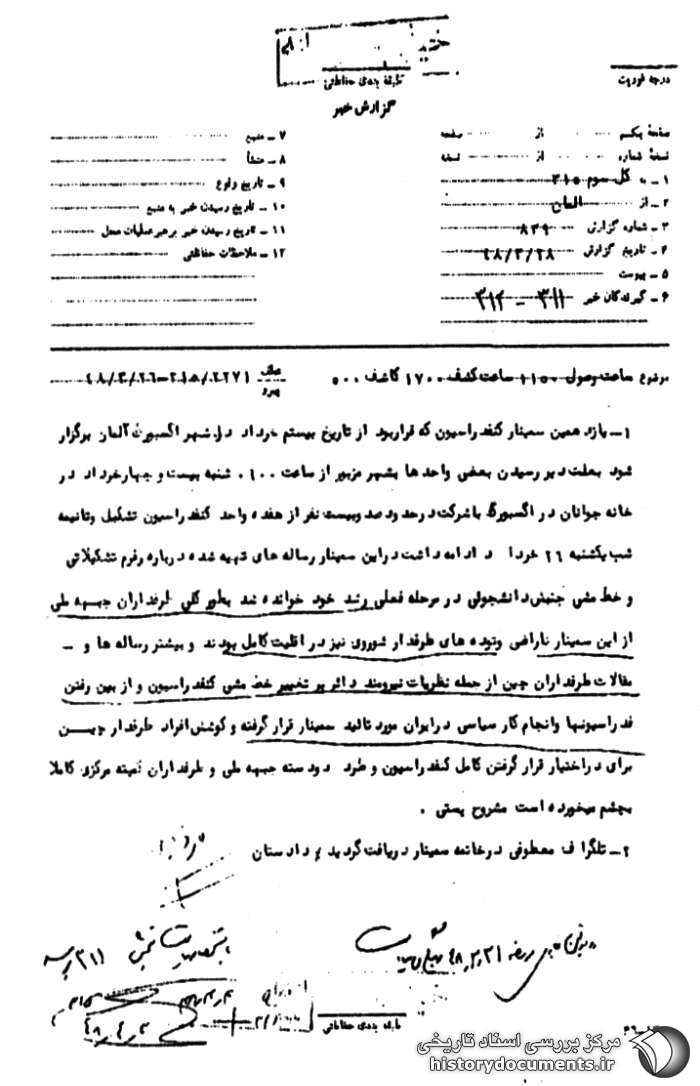 طبقه بندی حفاظتی
درجه فوریت
گزارش خبر
صفحهٔ یکم از صفحه
نسخهٔ شماره از نسخه
۱ـ به کل سوم ۳۱۵
۲ـ از المان
۳ـ شماره گزارش ۸۳۹
۴ـ تاریخ گزارش ۴۸/۳/۲۸
۵ـ پیوست
۶ـ گیرندگان خبر ۳۱۱ - ۳۱۲
۷ـ منبع
۸ـ منشأ
۹ـ تاریخ وقوع
۱۰ـ تاریخ رسیدن خبر به منبع
۱۱ـ تاریخ رسیدن خبر برهبر عملیات محل
۱۲ـ ملاحظات حفاظتی
موضوع ساعت وصول ۱۱۵۰ ساعت کشف ۱۷۰۰ کاشف ۵۰۰ عطف پیرو ۳۱۵/۰۲۲۷۱-۴۸/۳/۲۶
۱ـ یازدهمین سمینار کنفدراسیون که قراربود از تاریخ بیستم خرداد در شهر اگسبورگ آلمان برگزار
شود بعلت دیر رسیدن بعضی واحد ها بشهر مزبور از ساعت ۱۰۰۰ شنبه بیست و چهارخرداد در
خانه جوانان در اگسبورگ باشرکت درحدود صد وبیست نفر از هفده واحد کنفدراسیون تشکیل وتانیمه
شب یکشنبه ۲۶ خرداد ادامه داشت دراین سمینار رساله های تهیه شده درباره رفرم تشکیلاتی
و خط مشی جنبش دانشجوئی در مرحله فعلی رشد خود خوانده شد بطور کلی طرفداران جبهه ملی
از این سمینار ناراضی وتوده های طرفدار شوروی نیز در اقلیت کامل بودند و بیشتر رساله ها و ـ
مقالات طرفداران چین از جمله نظریات نیرومند دائر بر تغییر خط مشی کنفدراسیون و از بین رفتن
فدراسیونها وانجام کار سیاسی درایران مورد تائید سمینار قرار گرفته و کوشش افراد طرفدار چیـــن
برای در اختیار قرار گرفتن کامل کنفدراسیون و طرد دودسته جبهه ملی و طرفداران کمیته مرکزی کاملا
بچشم میخورده است مشروح پستی .
۲ـ تلگراف معطوفی درخاتمه سمینار دریافت گردید / دادستان
۳۱۱
طبقه بندی حفاظتی
۴۸/۴/۲
مرکز بررسی اسناد تاریخی
historydocuments.ir